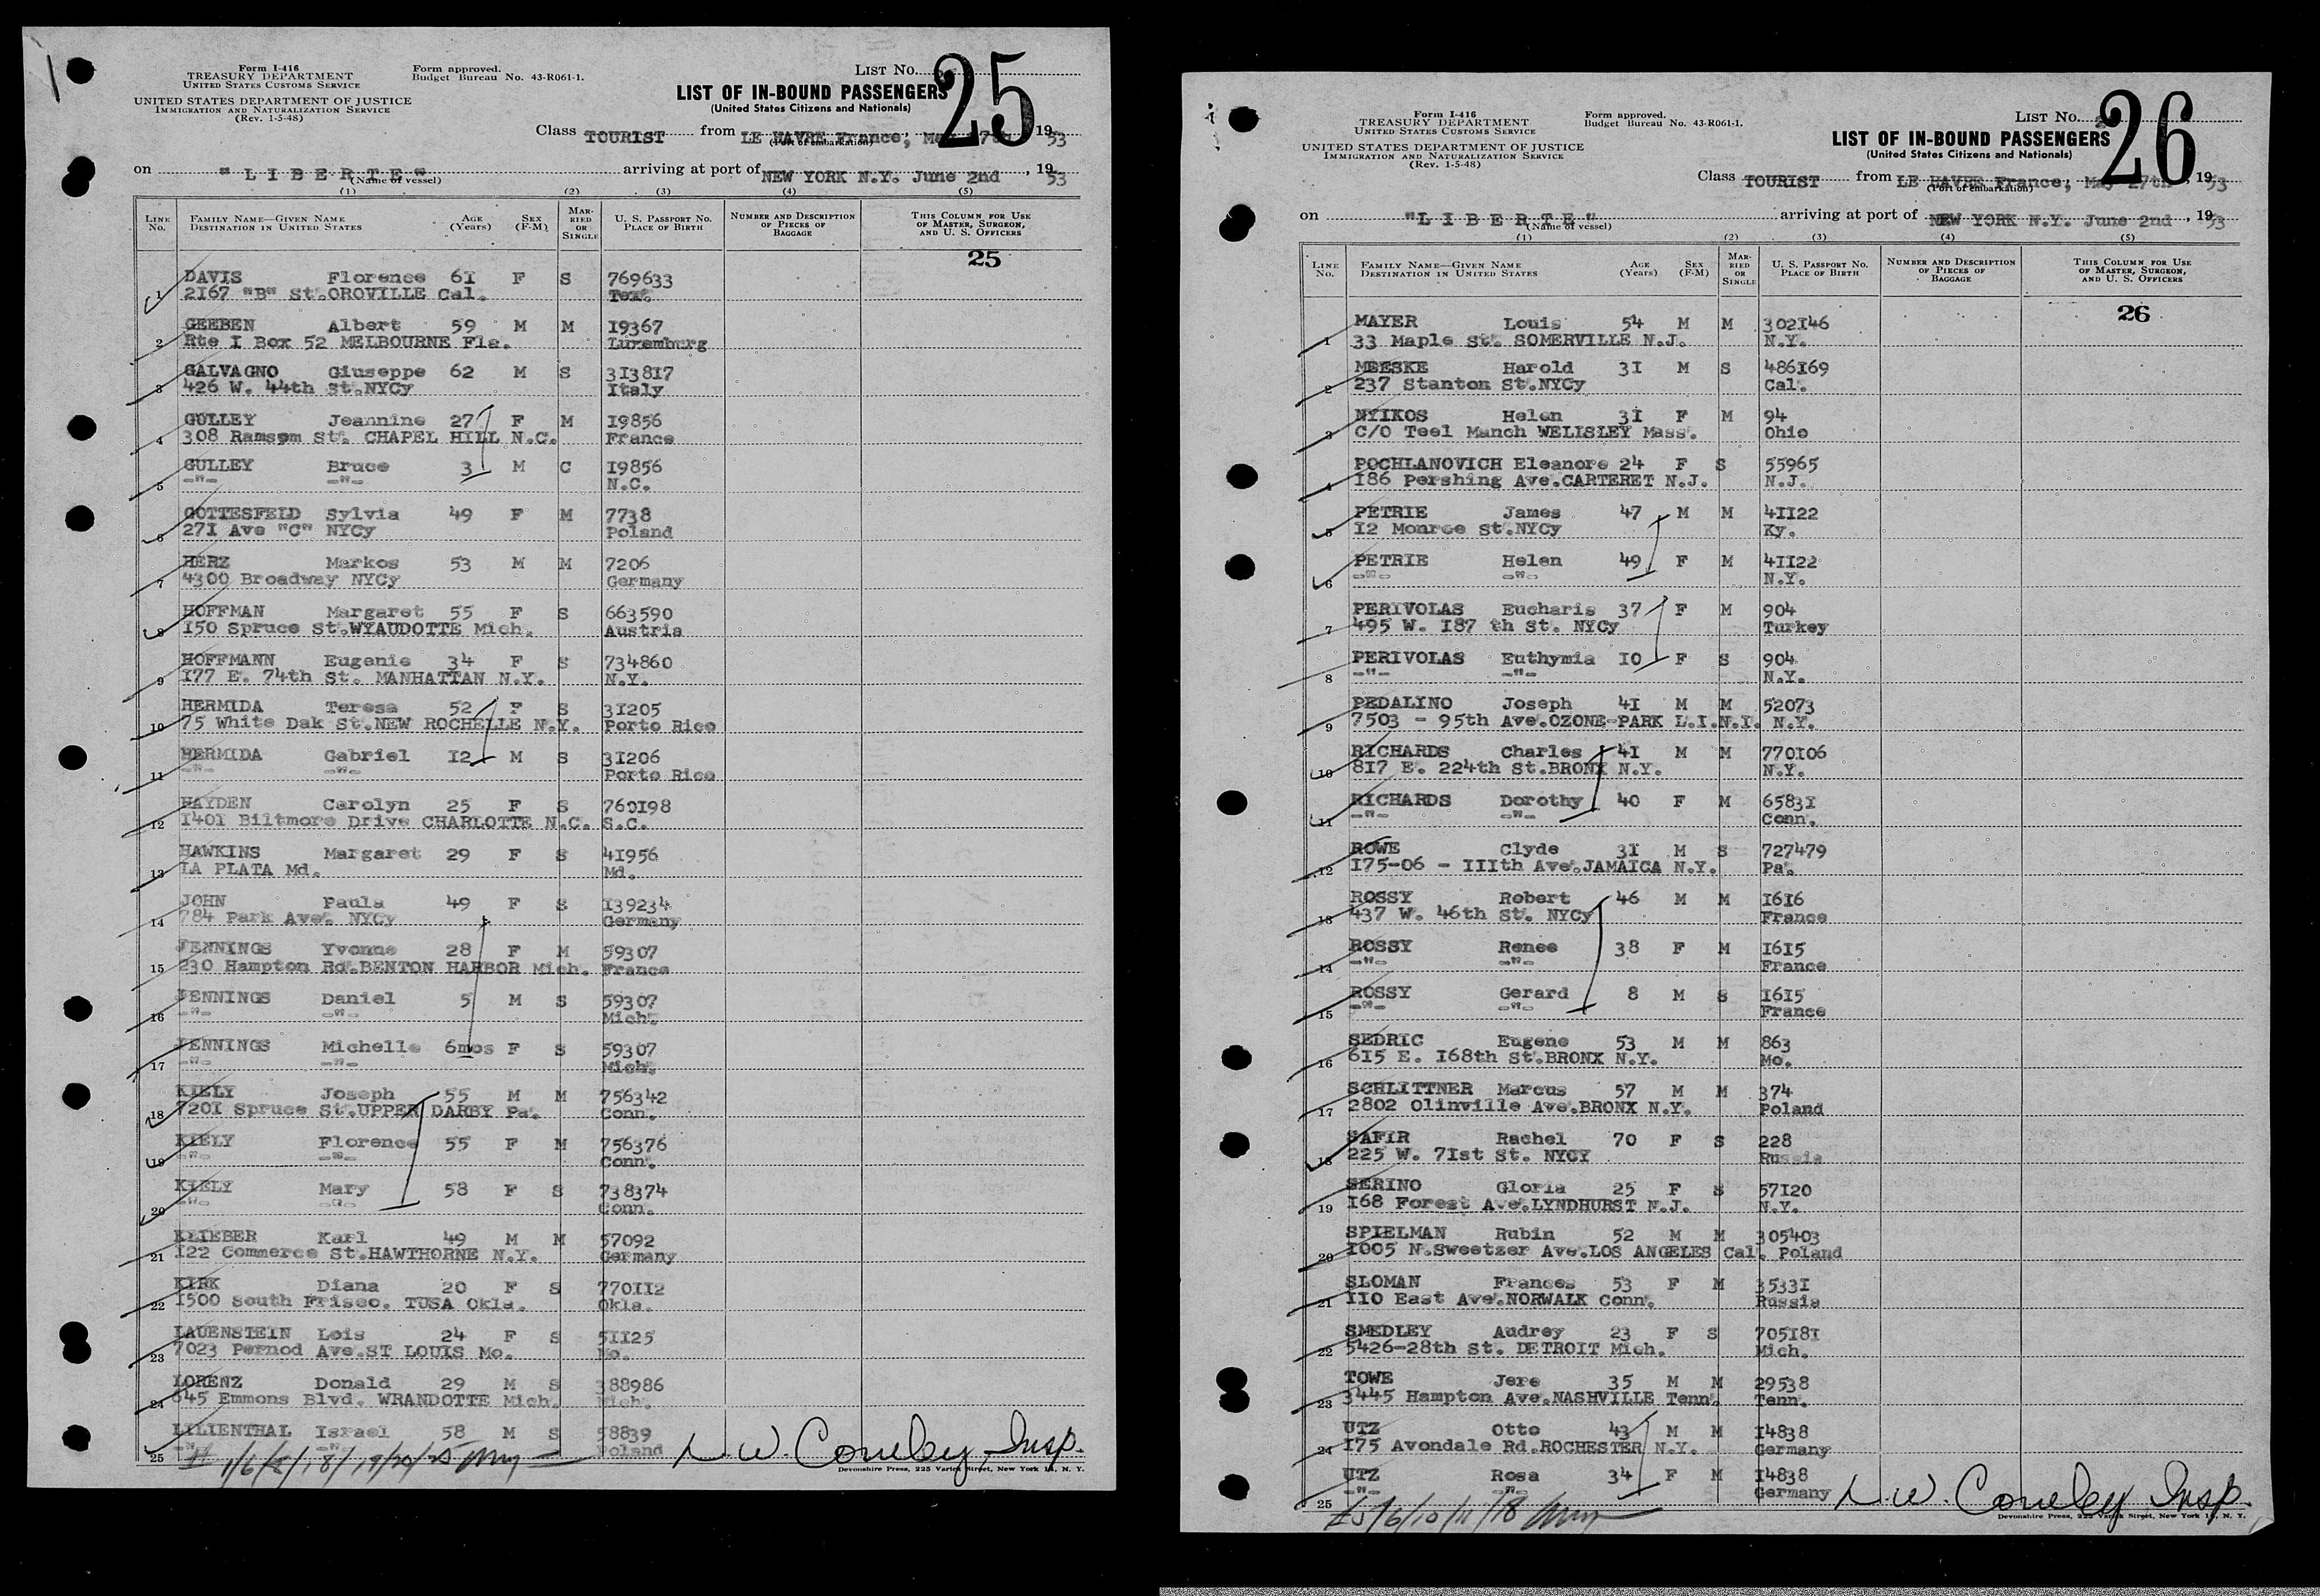 Form I-416
TREASURY DEPARTMENT
UNITED STATES CUSTOMS SERVICE
UNITED STATES DEPARTMENT OF JUSTICE
IMMIGRATION AND NATURALIZATION SERVICE
(Rev. 1-5-48)
Form approved.
Budget Bureau No. 43-R061-1.
LIST No. 25
LIST OF IN-BOUND PASSENGERS
(United States Citizens and Nationals)
Class TOURIST from LE HAVRE France, May 27th, 1953
(Port of embarkation)
on "LIBERTE" arriving at port of NEW YORK N.Y. June 2nd, 1953
(Name of vessel)
(1) (2) (3) (4) (5)
LINE No. FAMILY NAME—GIVEN NAME DESTINATION IN UNITED STATES AGE (Years) SEX (F-M) MARRIED OR SINGLE U. S. PASSPORT No. PLACE OF BIRTH NUMBER AND DESCRIPTION OF PIECES OF BAGGAGE THIS COLUMN FOR USE OF MASTER, SURGEON, AND U. S. OFFICERS
25
DAVIS Florence 61 F S 769633
1 2167 "B" St.OROVILLE Cal. Tex.
GEEBEN Albert 59 M M 19367
2 Rte I Box 52 MELBOURNE Fla. Luxemburg
GALVAGNO Giuseppe 62 M S 313817
3 426 W. 44th St.NYCy Italy
GULLEY Jeannine 27 F M 19856
4 308 Ransom St. CHAPEL HILL N.C. France
GULLEY Bruce 3 M C 19856
5 -"- -"- N.C.
GOTTESFELD Sylvia 49 F M 7738
6 271 Ave "C" NYCy Poland
HERZ Markos 53 M M 7206
7 4300 Broadway NYCy Germany
HOFFMAN Margaret 55 F S 663590
8 150 Spruce St.WYAUDOTTE Mich. Austria
HOFFMANN Eugenie 34 F S 734860
9 177 E. 74th St. MANHATTAN N.Y. N.Y.
HERMIDA Teresa 52 F S 31205
10 75 White Dak St.NEW ROCHELLE N.Y. Porto Rico
HERMIDA Gabriel 12 M S 31206
11 -"- -"- Porto Rico
HAYDEN Carolyn 25 F S 760198
12 1401 Biltmore Drive CHARLOTTE N.C. S.C.
HAWKINS Margaret 29 F S 41956
13 LA PLATA Md. Md.
JOHN Paula 49 F S 139234
14 784 Park Ave. NYCy Germany
JENNINGS Yvonne 28 F M 59307
15 230 Hampton Rd.BENTON HARBOR Mich. France
JENNINGS Daniel 5 M S 59307
16 -"- -"- Mich.
JENNINGS Michelle 6mos F S 59307
17 -"- -"- Mich.
KIELY Joseph 55 M M 756342
18 7201 Spruce St.UPPER DARBY Pa. Conn.
KIELY Florence 55 F M 756376
19 -"- -"- Conn.
KIELY Mary 58 F S 738374
20 -"- -"- Conn.
KLIEBER Karl 49 M M 57092
21 122 Commerce St.HAWTHORNE N.Y. Germany
KIRK Diana 20 F S 770112
22 1500 South Frisco. TUSA Okla. Okla.
LAUENSTEIN Lois 24 F S 51125
23 7023 Pernod Ave.ST LOUIS Mo. Mo.
LORENZ Donald 29 M S 388986
24 645 Emmons Blvd. WRANDOTTE Mich. Mich.
LILIENTHAL Israel 58 M S 58839
25 -"- -"- Poland
1/6/8/18/19/20/25
Insp.
Devonshire Press, 225 Varick Street, New York 14, N. Y.
Form I-416
TREASURY DEPARTMENT
UNITED STATES CUSTOMS SERVICE
UNITED STATES DEPARTMENT OF JUSTICE
IMMIGRATION AND NATURALIZATION SERVICE
(Rev. 1-5-48)
Form approved.
Budget Bureau No. 43-R061-1.
LIST No. 26
LIST OF IN-BOUND PASSENGERS
(United States Citizens and Nationals)
Class TOURIST from LE HAVRE France, May 27th, 1953
(Port of embarkation)
on "LIBERTE" arriving at port of NEW YORK N.Y. June 2nd, 1953
(Name of vessel)
(1) (2) (3) (4) (5)
LINE No. FAMILY NAME—GIVEN NAME DESTINATION IN UNITED STATES AGE (Years) SEX (F-M) MARRIED OR SINGLE U. S. PASSPORT No. PLACE OF BIRTH NUMBER AND DESCRIPTION OF PIECES OF BAGGAGE THIS COLUMN FOR USE OF MASTER, SURGEON, AND U. S. OFFICERS
26
MAYER Louis 54 M M 302146
1 33 Maple St. SOMERVILLE N.J. N.Y.
MEESKE Harold 31 M S 486169
2 237 Stanton St.NYCy Cal.
NYIKOS Helen 31 F M 94
3 C/O Teel Manch WELISLEY Mass. Ohio
POCHLANOVICH Eleanore 24 F S 55965
4 186 Pershing Ave.CARTERET N.J. N.J.
PETRIE James 47 M M 41122
5 12 Monroe St.NYCy Ky.
PETRIE Helen 49 F M 41122
6 -"- -"- N.Y.
PERIVOLAS Eucharis 37 F M 904
7 495 W. 187 th St. NYCy Turkey
PERIVOLAS Euthymia 10 F S 904
8 -"- -"- N.Y.
PEDALINO Joseph 41 M M 52073
9 7503 - 95th Ave.OZONE-PARK L.I.N.Y. N.Y.
RICHARDS Charles 41 M M 770106
10 817 E. 224th St.BRONX N.Y. N.Y.
RICHARDS Dorothy 40 F M 65831
11 -"- -"- Conn.
ROWE Clyde 31 M S 727479
12 175-06 - 111th Ave.JAMAICA N.Y. Pa.
ROSSY Robert 46 M M 1616
13 437 W. 46th St. NYCy France
ROSSY Renee 38 F M 1615
14 -"- -"- France
ROSSY Gerard 8 M S 1615
15 -"- -"- France
SEDRIC Eugene 53 M M 863
16 615 E. 168th St.BRONX N.Y. Mo.
SCHLITTNER Marcus 57 M M 374
17 2802 Olinville Ave.BRONX N.Y. Poland
SAFIR Rachel 70 F S 228
18 225 W. 71st St. NYCY Russia
SERINO Gloria 25 F S 57120
19 168 Forest Ave.LYNDHURST N.J. N.Y.
SPIELMAN Rubin 52 M M 305403
20 1005 N.Sweetzer Ave.LOS ANGELES Cal. Poland
SLOMAN Frances 53 F M 35331
21 110 East Ave.NORWALK Conn. Russia
SMEDLEY Audrey 23 F S 705181
22 5426-28th St. DETROIT Mich. Mich.
TOWE Jere 35 M M 29538
23 3445 Hampton Ave.NASHVILLE Tenn. Tenn.
UTZ Otto 43 M M 14838
24 175 Avondale Rd.ROCHESTER N.Y. Germany
UTZ Rosa 34 F M 14838
25 -"- -"- Germany
5/6/10/11/18
Insp.
Devonshire Press, 225 Varick Street, New York 14, N. Y.